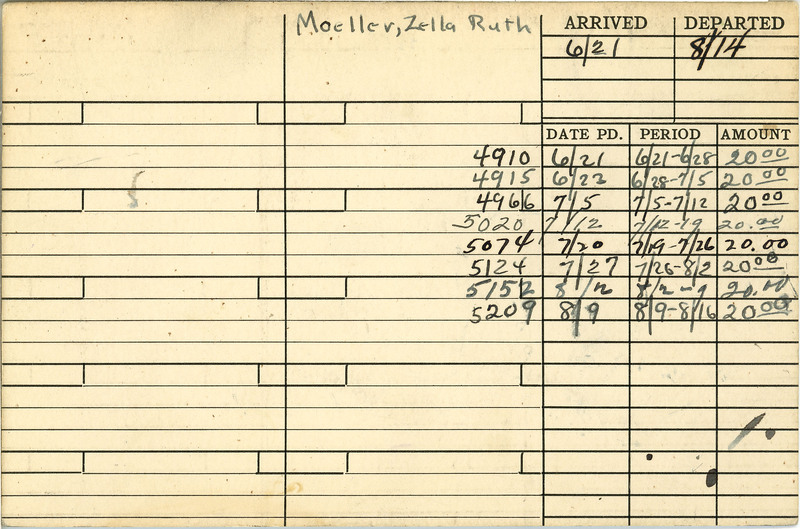 Moeller, Zella Ruth
ARRIVED DEPARTED
6/21 8/14
DATE PD. PERIOD AMOUNT
4910 6/21 6/21-6/28 20.00
4915 6/23 6/28-7/5 20.00
4966 7/5 7/5-7/12 20.00
5020 7/12 7/12-19 20.00
5074 7/20 7/19-7/26 20.00
5124 7/27 7/26-8/2 20.00
5152 8/2 8/2-9 20.00
5209 8/9 8/9-8/16 20.00